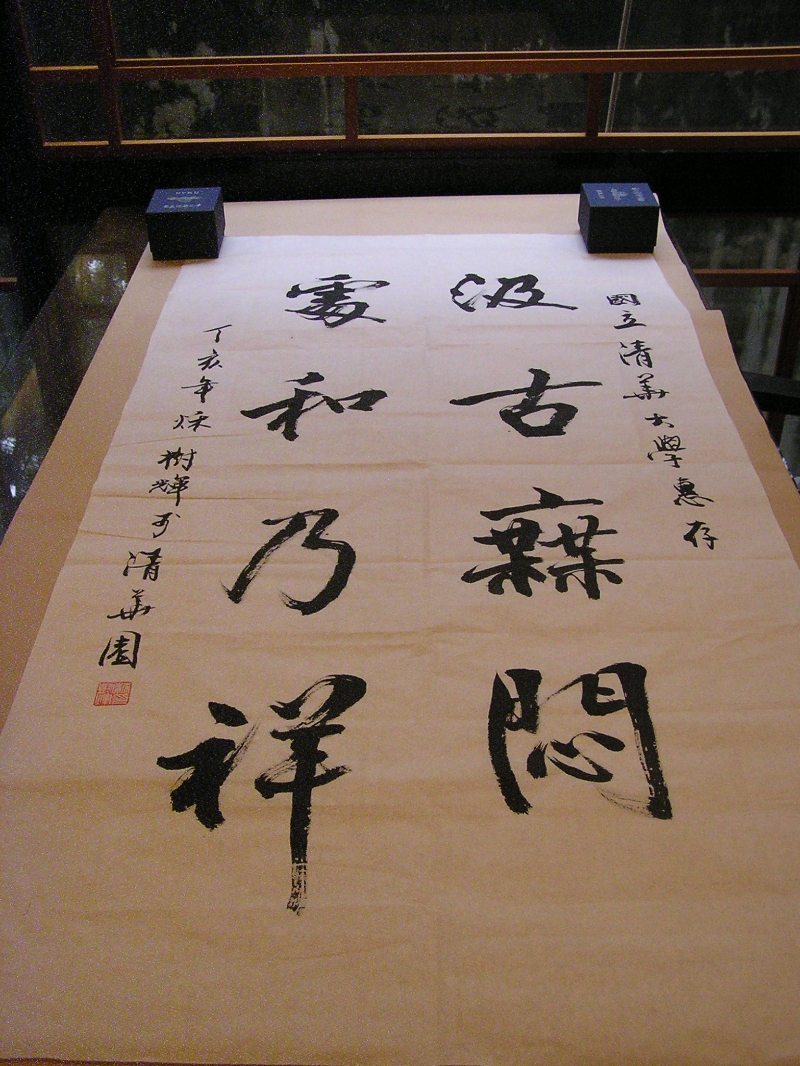 國立清華大學惠存
汲古橆悶
處和乃祥
丁亥年秋樹輝於清華園